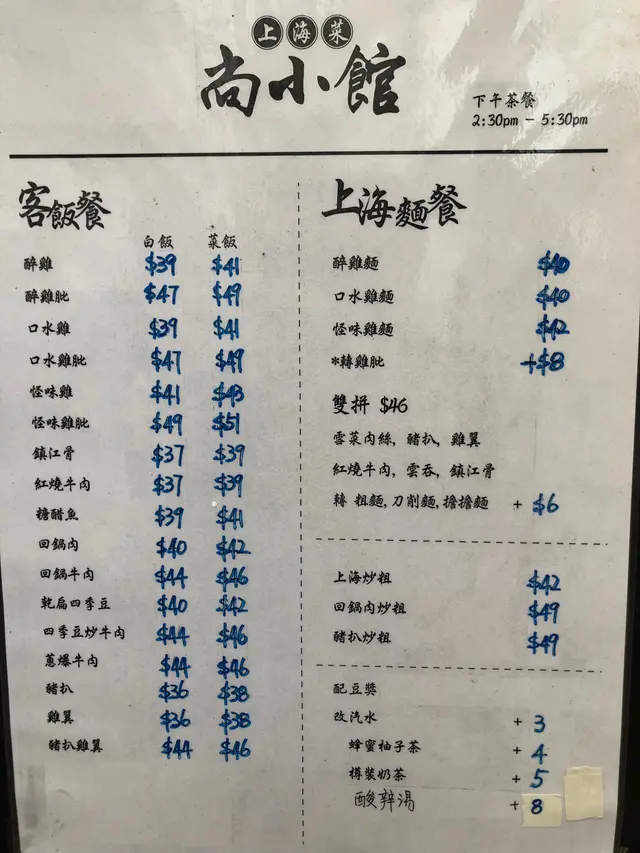 上海菜
尚小館
下午茶餐
2:30pm - 5:30pm
客飯餐
白飯 菜飯
醉雞 $39 $41
醉雞肶 $47 $49
口水雞 $39 $41
口水雞肶 $47 $49
怪味雞 $41 $43
怪味雞肶 $49 $51
鎮江骨 $37 $39
紅燒牛肉 $37 $39
糖醋魚 $39 $41
回鍋肉 $40 $42
回鍋牛肉 $44 $46
乾扁四季豆 $40 $42
四季豆炒牛肉 $44 $46
蔥爆牛肉 $44 $46
豬扒 $36 $38
雞翼 $36 $38
豬扒雞翼 $44 $46
上海麵餐
醉雞麵 $40
口水雞麵 $40
怪味雞麵 $42
*轉雞肶 +$8
雙拼 $46
雲菜肉絲, 豬扒, 雞翼
紅燒牛肉, 雲吞, 鎮江骨
轉 粗麵,刀削麵,擔擔麵 + $6
上海炒粗 $42
回鍋肉炒粗 $49
豬扒炒粗 $49
配豆漿
改汽水 + 3
蜂蜜柚子茶 + 4
樽裝奶茶 + 5
酸辣湯 + 8